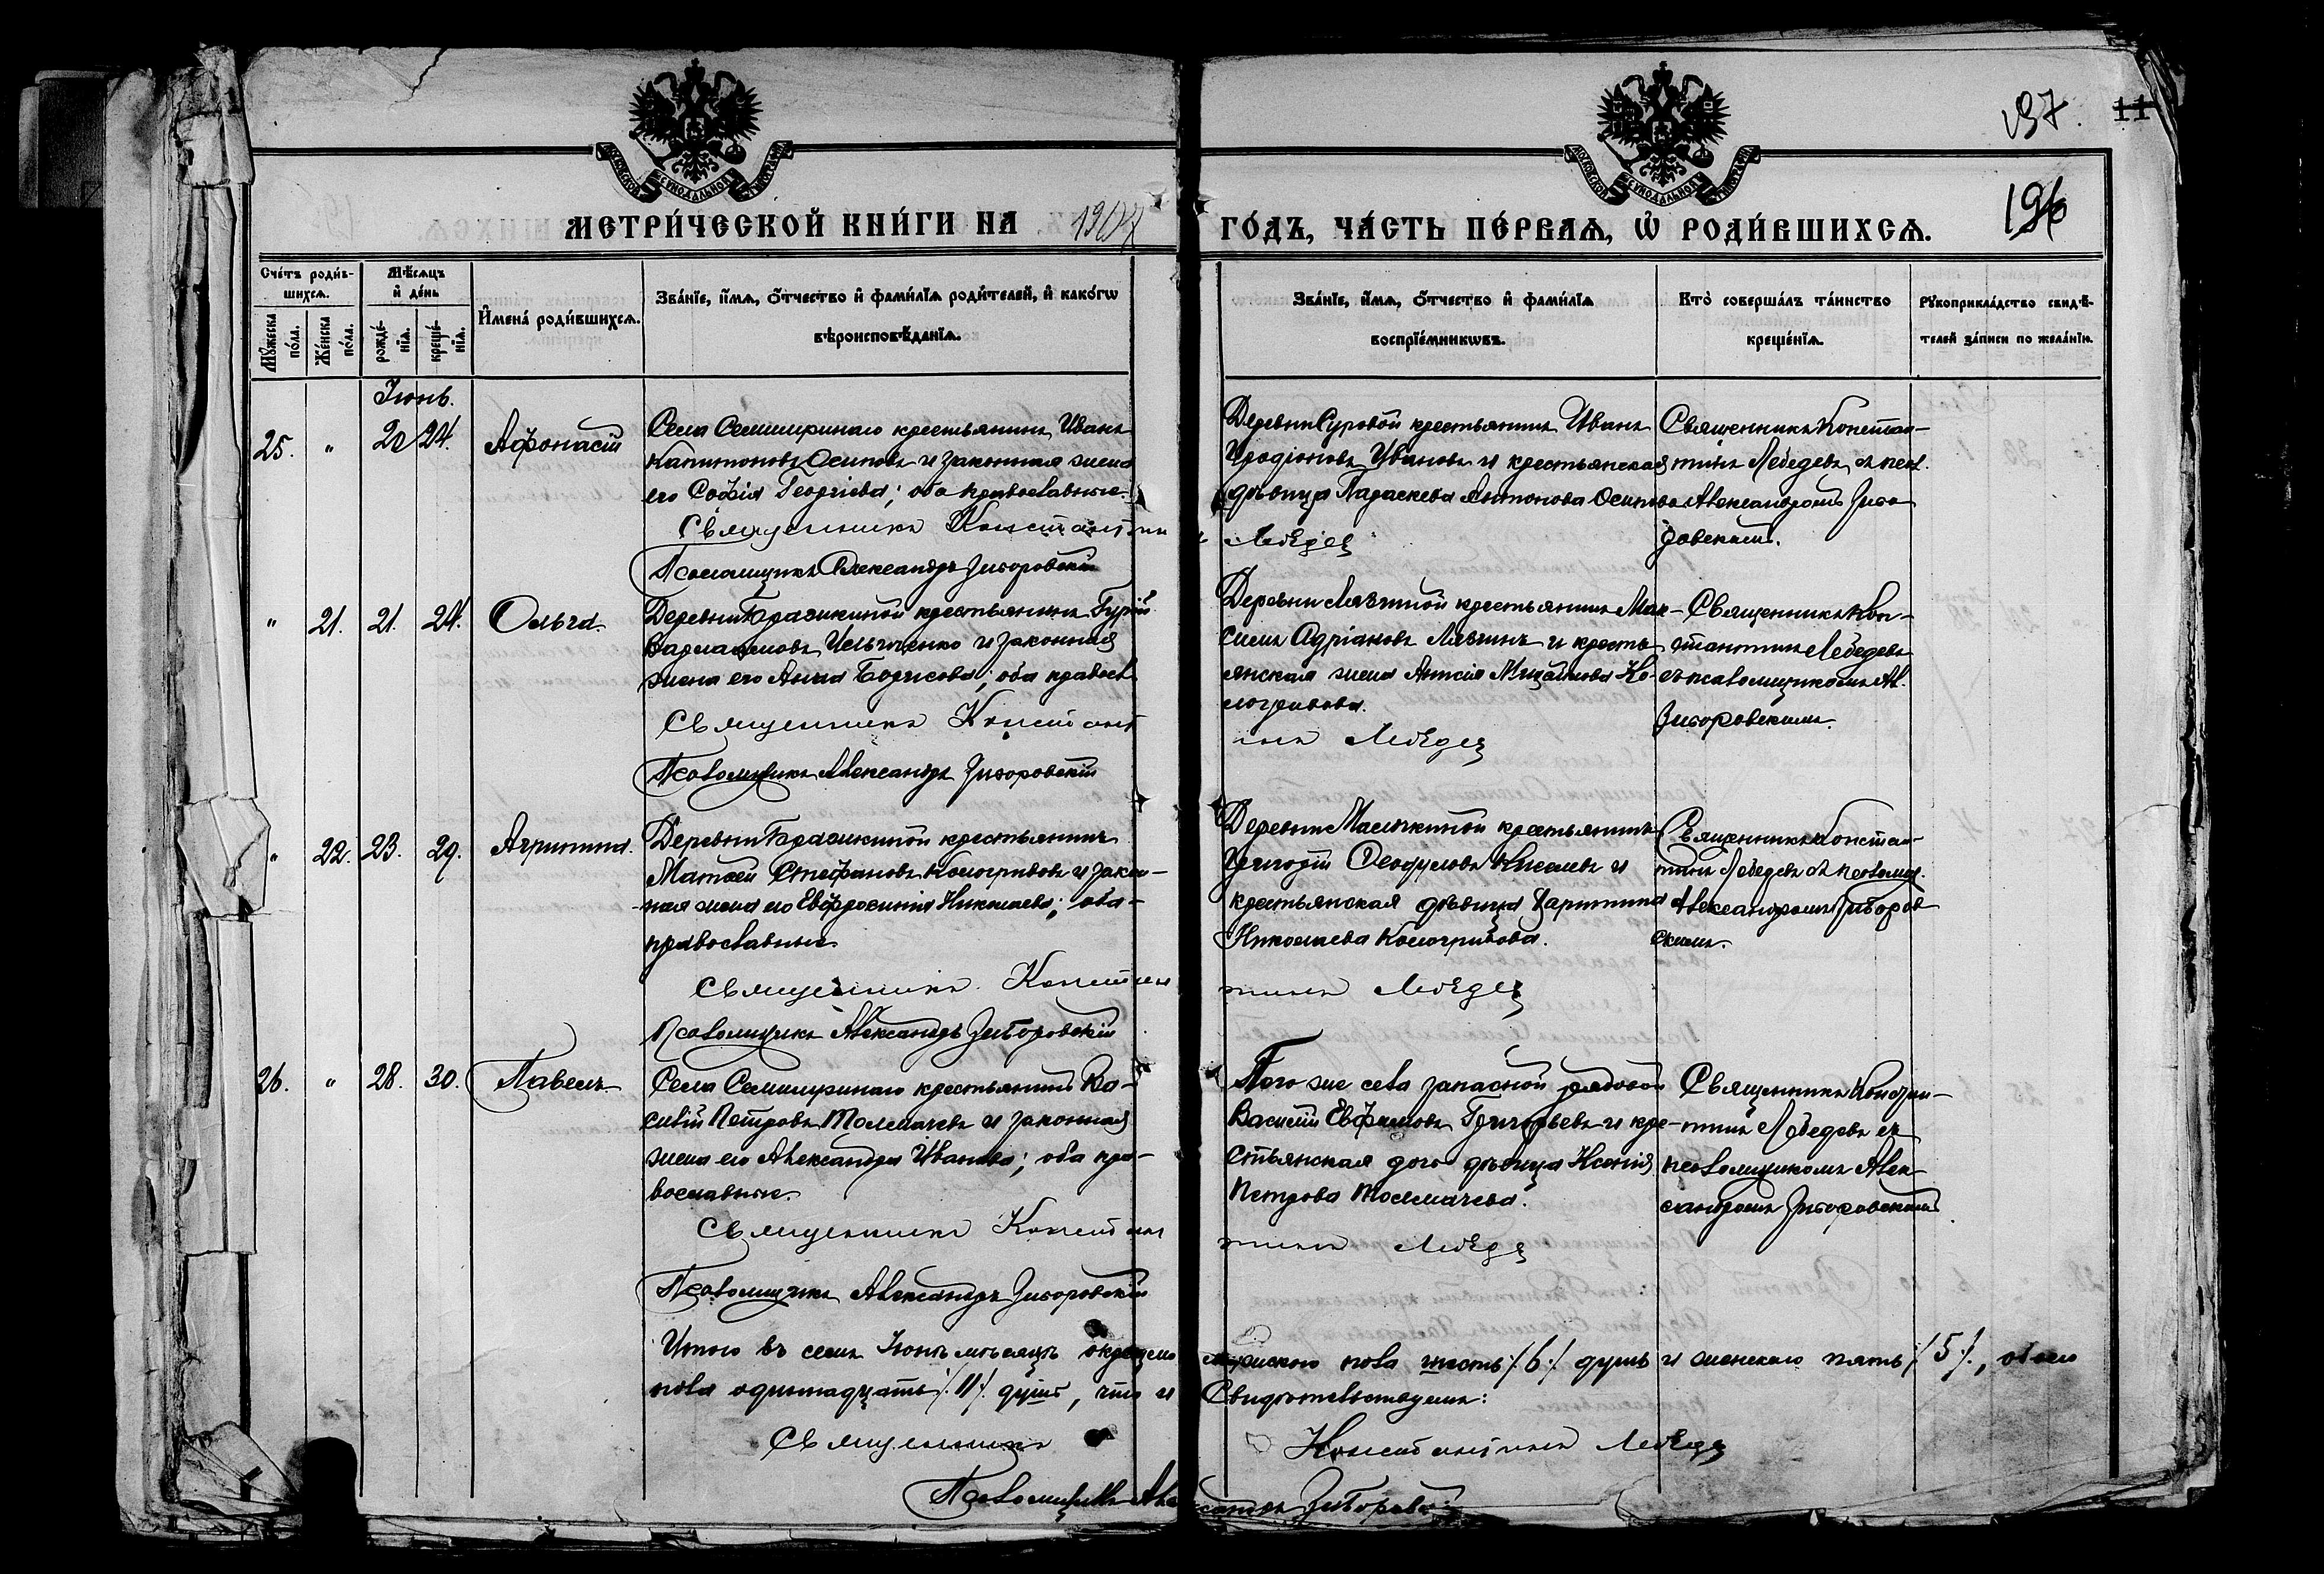 137. 11
196
МОСКОВСКОЙ СѴНОДАЛЬНОЙ ТИПОГРАФІИ
МОСКОВСКОЙ СѴНОДАЛЬНОЙ ТИПОГРАФІИ
МЕТРИ́ЧЕСКОЙ КНИ́ГИ НА 1904
ГО́ДЪ, ЧА́СТЬ ПЕ́РВАѦ, Ѡ҆ РОДИ́ВШИХСѦ.
Сче́тъ роди́в-
шихсѧ.
Мꙋ́жеска по́ла.
Же́нска по́ла.
Мѣ́сѧцъ
и҆ де́нь
рожде́-
нїѧ.
креще́-
нїѧ.
И҆мена̀ роди́вшихсѧ.
Зва́нїе, и҆́мѧ, ѻ҆́тчество и҆ фами́лїѧ роди́телей, и҆ како́гѡ
вѣроисповѣ́данїѧ.
Зва́нїе, и҆́мѧ, ѻ҆́тчество и҆ фами́лїѧ
воспрїе́мникѡвъ.
Кто̀ соверша́лъ та́инство
креще́нїѧ.
Рꙋкоприкла́дство свидѣ́-
телей за́писи по жела́нїю.
Іюнь.
25. " 20 24. Афонасій
Села Семишуринаго крестьянинъ Иванъ
Капитоновъ Осиповъ и законная жена
его Софія Георгіева; оба православные.
Священникъ Константин
Псаломщикъ Александръ Зиборовскій
Деревни Суровой крестьянинъ Иванъ
Иродіоновъ Ивановъ и крестьянская
дѣвица Параскева Антонова Осипова
Лебедев
Священникъ Констан-
тинъ Лебедевъ съ псал.
Александромъ Зибо
ровскимъ.
" 21. 21. 24. Ольга.
Деревни Гарашкиной крестьянинъ Гурій
Варлаамовъ Ильиченко и законная
жена его Анна Борисова; оба правосл.
Священникъ Констант
Псаломщикъ Александръ Зиборовскій
Деревни Лявтиной крестьянинъ Мак-
симъ Адріановъ Лявтинъ и кресть
янская жена Анисія Михайлова Ко-
логривова.
инъ Лебедев
Священникъ Кон-
стантинъ Лебедевъ
съ псаломщикомъ Ал.
Зиборовскимъ.
" 22. 23. 29. Агрипина.
Деревни Гарашкиной крестьянинъ
Матвей Стефановъ Кологривовъ и закон-
ная жена его Евфросинія Николаева; оба-
православные.
Священникъ Констан
Псаломщикъ Александръ Зиборовскій
Деревни крестьянинъ
Григорій Киселевъ и
крестьянская дѣвица Харитина
Николаева Кологривова.
тинъ Лебедев
Священникъ Констан-
тинъ Лебедевъ съ псаломщ.
Александромъ Зиборов
скимъ.
26. " 28. 30. Павелъ
Села Семишуринаго крестьянинъ Ва-
силій Петровъ Толмачевъ и законная
жена его Александра Иванова; оба пра-
вославные.
Священникъ Констан
Псаломщикъ Александръ Зиборовскій
Того же села запасной рядовой
Василій Евфимовъ Григорьевъ и кре-
стьянская дочь дѣвица Ксенія
Петрова Толмачева.
тинъ Лебедев
Священникъ Констан-
тинъ Лебедевъ съ
псаломщикомъ Алек-
сандромъ Зиборовскимъ
Итого въ семъ Іюнѣ мѣсяцѣ окрещено мужского пола шесть /.6./ душъ и женскаго пять /.5./, обоего
пола одиннадцать /.11./ душъ, что и Свидѣтельствуемъ:
Священникъ Константинъ Лебедев
Псаломщикъ Александръ Зиборовскій